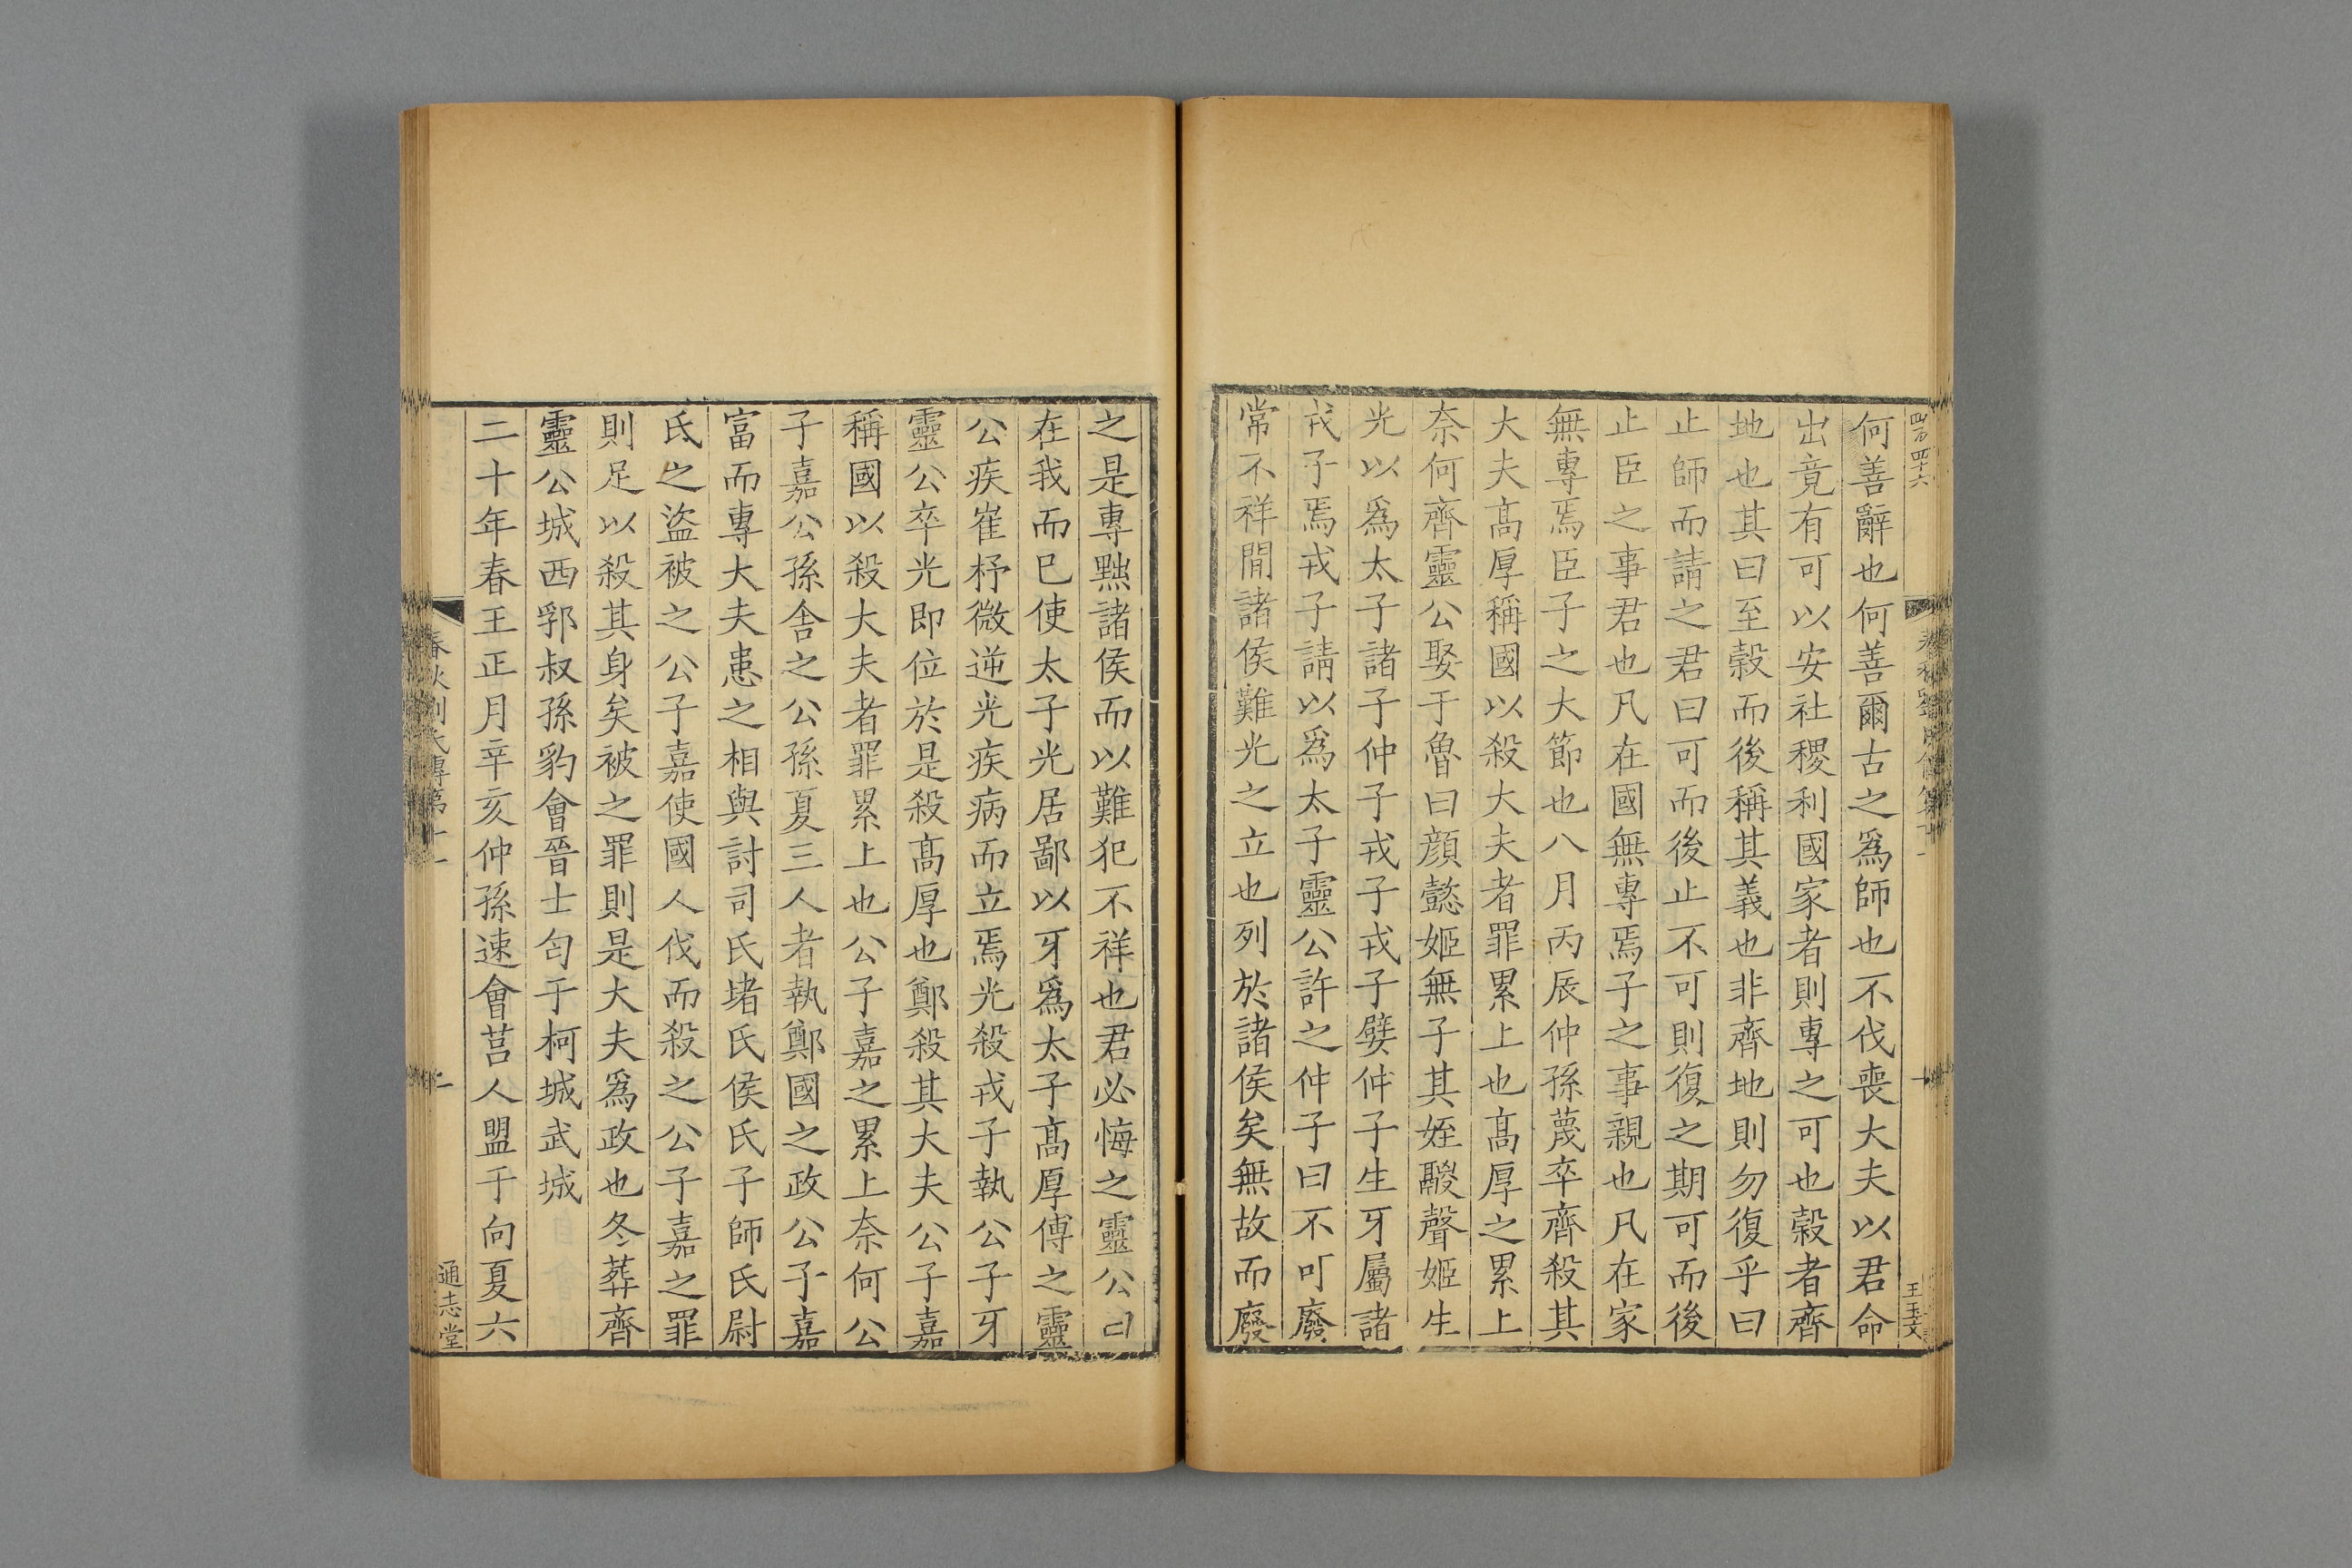 何善辭也何善爾古之爲師也不伐喪大夫以君命
出竟有可以安社稷利國家者則專之可也榖者齊
地也其曰至榖而後稱其義也非齊地則勿復乎曰
止師而請之君曰可而後止不可則復之期可而後
止臣之事君也凡在國無專焉子之事親也凡在家
無專焉臣子之大節也八月丙辰仲孫蔑卒齊殺其
大夫髙厚稱國以殺大夫者罪累上也髙厚之累上
奈何齊靈公娶于魯曰顔懿姬無子其姪鬷聲姬生
光以爲太子諸子仲子戎子戎子嬖仲子生牙屬諸
戎子焉戎子請以爲太子靈公許之仲子曰不可廢
常不祥閒諸侯難光之立也列於諸侯矣無故而廢
之是專黜諸侯而以難犯不祥也君必悔之靈公曰
在我而已使太子光居鄙以牙爲太子髙厚傅之靈
公疾崔杼微逆光疾病而立焉光殺戎子執公子牙
靈公卒光即位於是殺髙厚也鄭殺其大夫公子嘉
稱國以殺大夫者罪累上也公子嘉之累上奈何公
子嘉公孫舎之公孫夏三人者執鄭國之政公子嘉
富而專大夫患之相與討司氏堵氏侯氏子師氏尉
氏之盜被之公子嘉使國人伐而殺之公子嘉之罪
則足以殺其身矣被之罪則是大夫爲政也冬葬齊
靈公城西郛叔孫豹會晉士匄于柯城武城
二十年春王正月辛亥仲孫速會莒人盟于向夏六
春秋劉氏傳第十一
二
通志堂